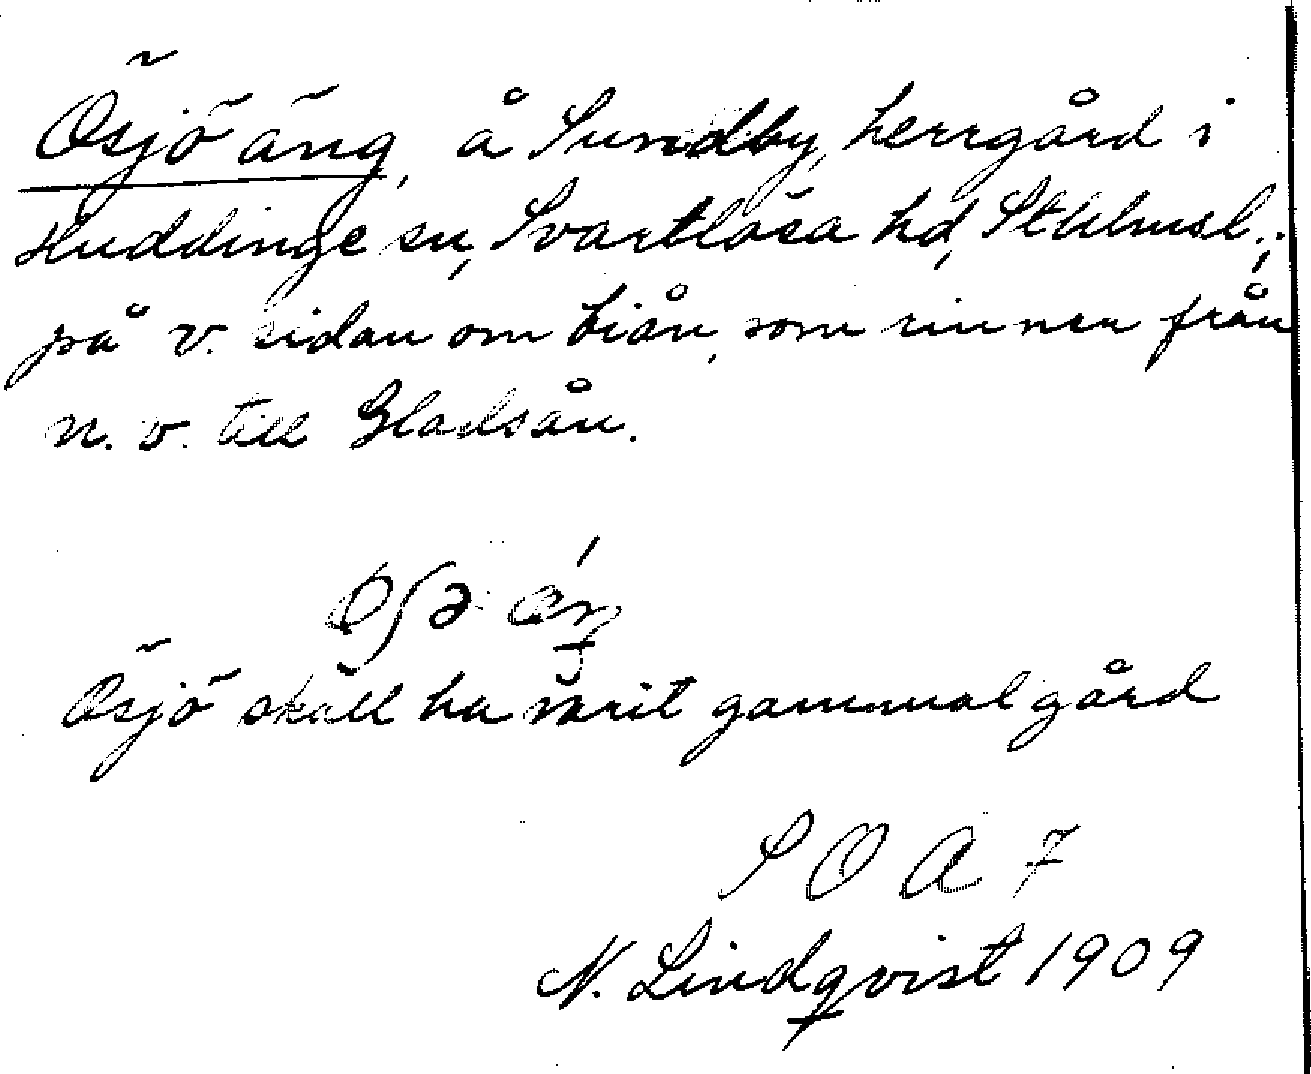 Ösjö äng, å Sundby, herrgård i
Huddinge sn, Svartlösa hd, Sthlmsl.;
på v. sidan om biån, som rinner från
n. v. till Gladsån.
Ösjö skall ha varit gammal gård
S O A 7
N. Lindqvist 1909